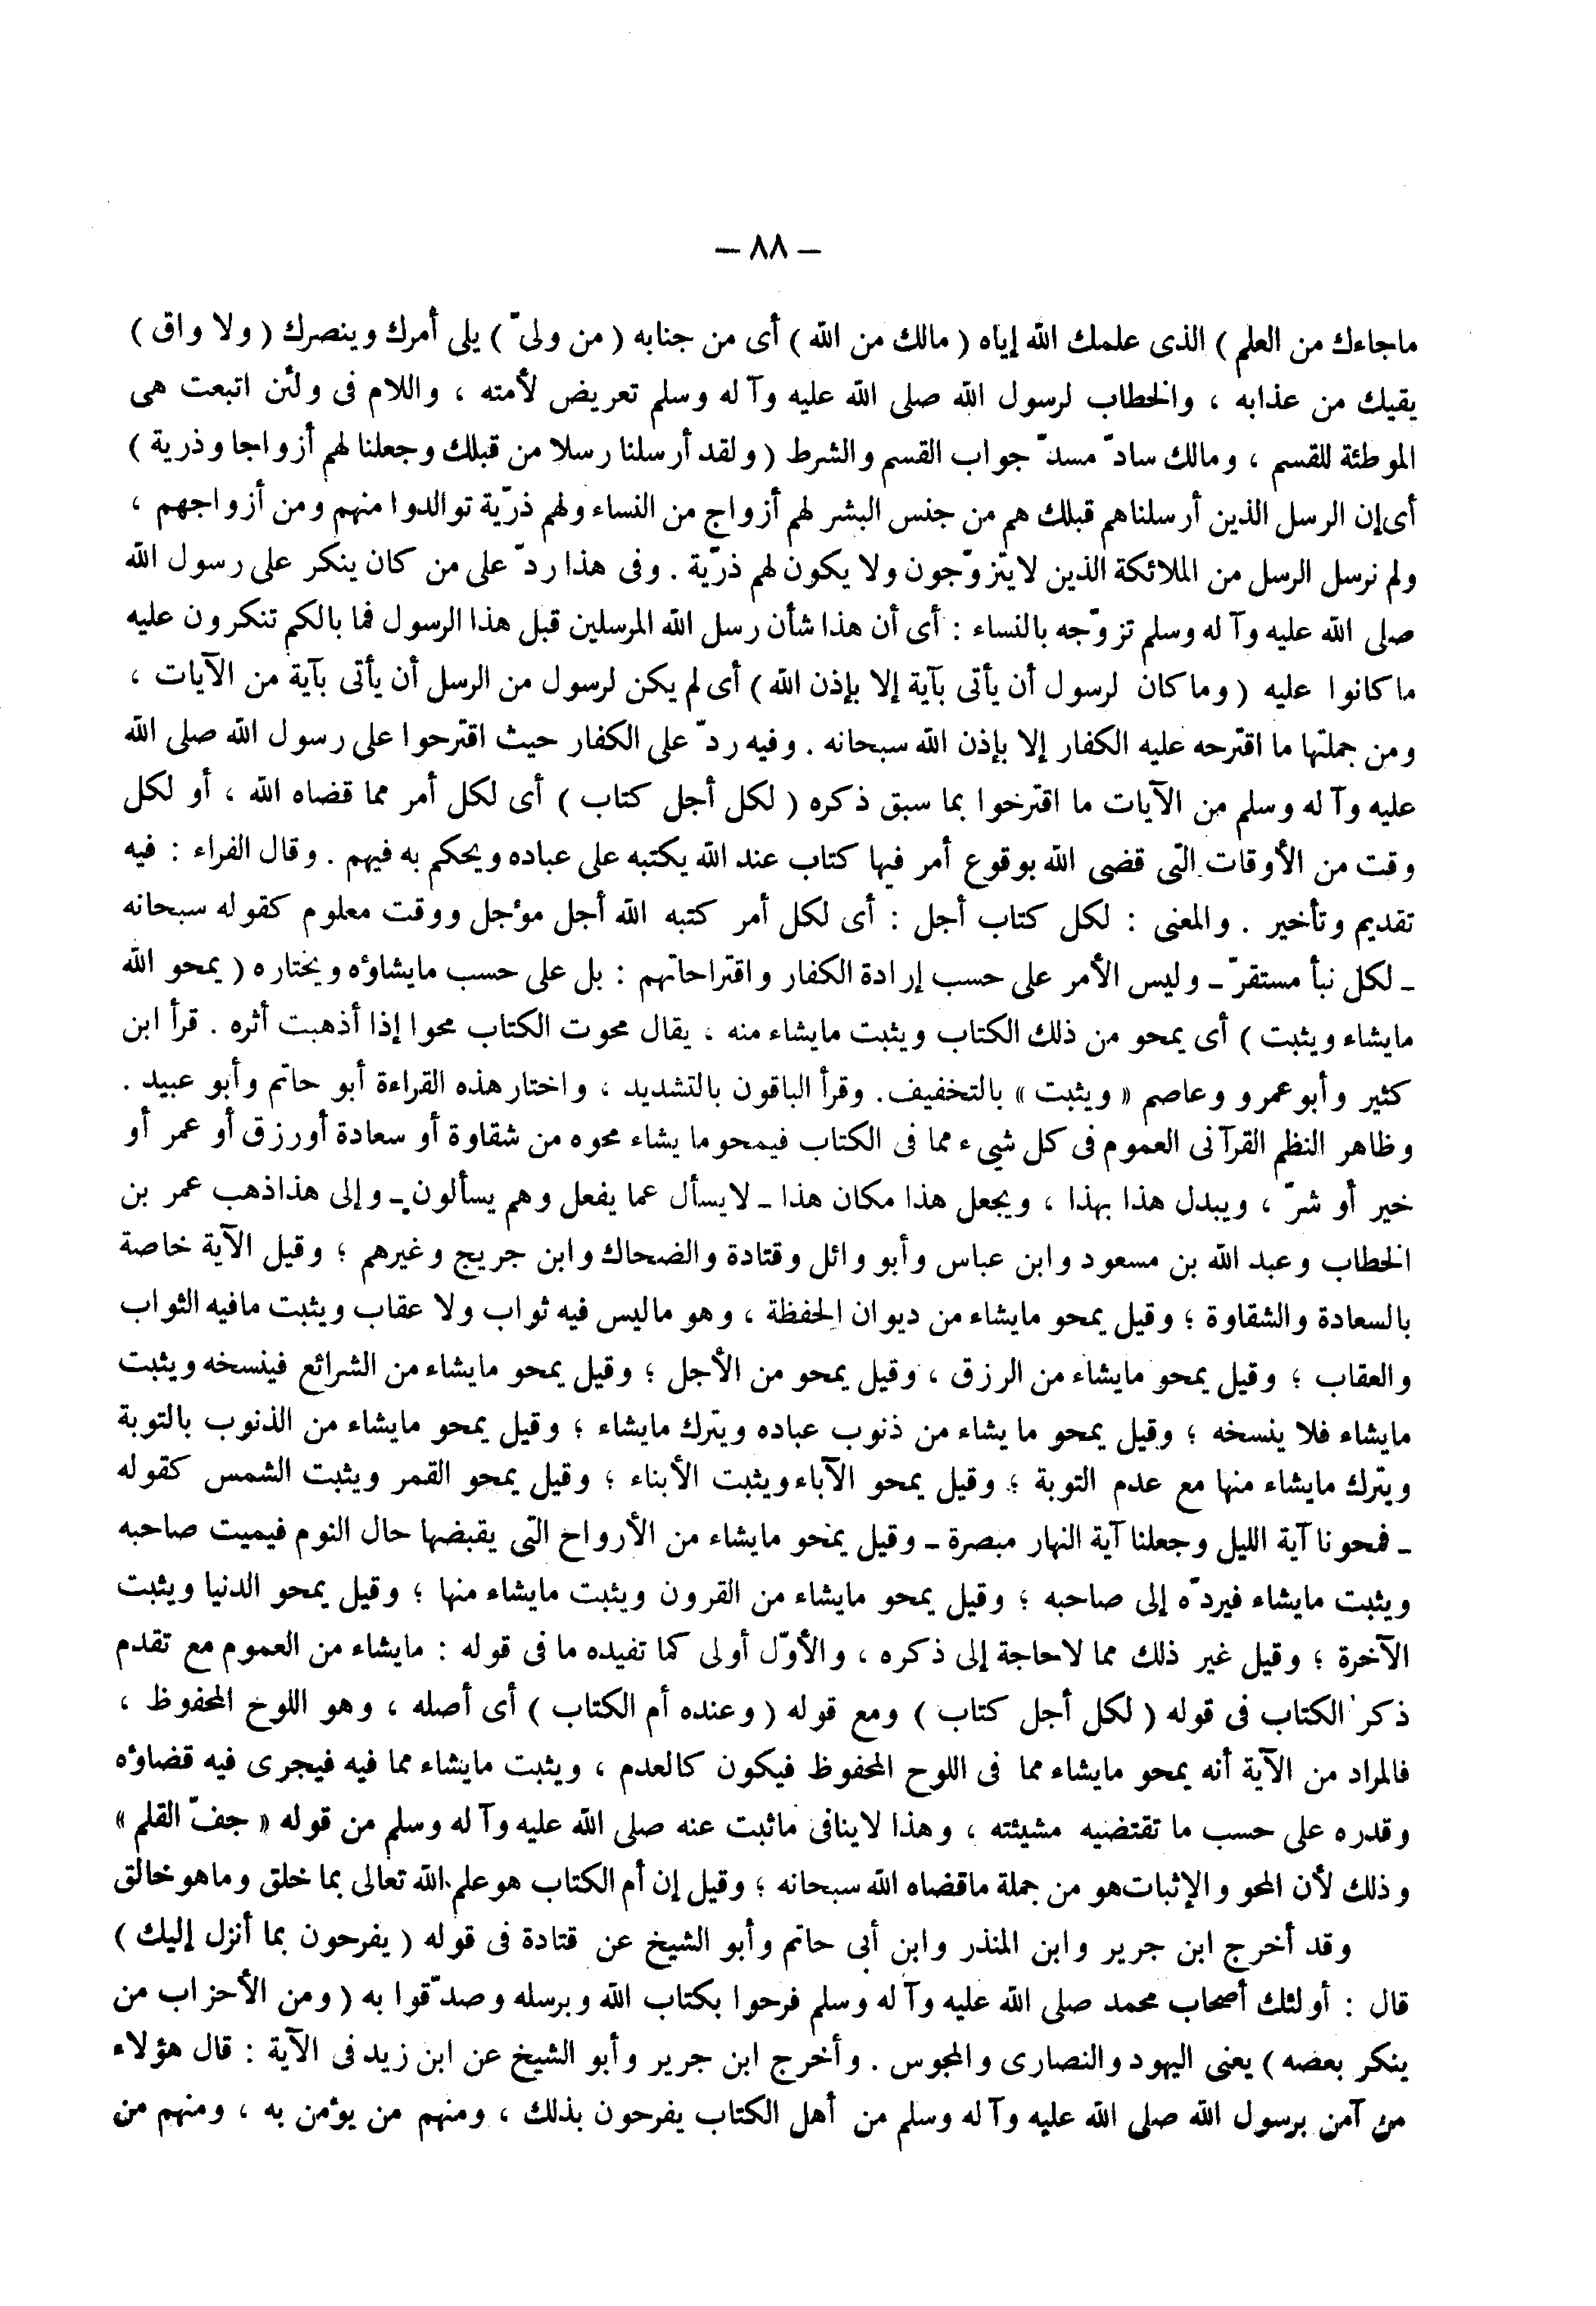 — ٨٨ —
ماجاءك من العلم ) الذى علمك الله إياه ( مالك من الله ) أى من جنابه ( من ولىّ ) يلى أمرك وينصرك ( ولا واق )
يقيك من عذابه ، والخطاب لرسول الله صلى الله عليه وآله وسلم تعريض لأمته ، واللام فى ولئن اتبعت هى
الموطئة للقسم ، ومالك سادّ مسدّ جواب القسم والشرط ( ولقد أرسلنا رسلا من قبلك وجعلنا لهم أزواجا وذرية )
أى إن الرسل الذين أرسلناهم قبلك هم من جنس البشر لهم أزواج من النساء ولهم ذرّية توالدوا منهم ومن أزواجهم ،
ولم نرسل الرسل من الملائكة الذين لايتزوّجون ولا يكون لهم ذرّية . وفى هذا ردّ على من كان ينكر على رسول الله
صلى الله عليه وآله وسلم تزوّجه بالنساء : أى أن هذا شأن رسل الله المرسلين قبل هذا الرسول فما بالكم تنكرون عليه
ما كانوا عليه ( وما كان لرسول أن يأتى بآية إلا بإذن الله ) أى لم يكن لرسول من الرسل أن يأتى بآية من الآيات ،
ومن جملتها ما اقترحه عليه الكفار إلا بإذن الله سبحانه . وفيه ردّ على الكفار حيث اقترحوا على رسول الله صلى الله
عليه وآله وسلم من الآيات ما اقترحوا بما سبق ذكره ( لكل أجل كتاب ) أى لكل أمر مما قضاه الله ، أو لكل
وقت من الأوقات التى قضى الله بوقوع أمر فيها كتاب عند الله يكتبه على عباده ويحكم به فيهم . وقال الفراء : فيه
تقديم وتأخير . والمعنى : لكل كتاب أجل : أى لكل أمر كتبه الله أجل مؤجل ووقت معلوم كقوله سبحانه
ـ لكل نبأ مستقرّ ـ وليس الأمر على حسب إرادة الكفار واقتراحاتهم : بل على حسب مايشاؤه ويختاره ( يمحو الله
مايشاء ويثبت ) أى يمحو من ذلك الكتاب ويثبت مايشاء منه ، يقال محوت الكتاب محوا إذا أذهبت أثره . قرأ ابن
كثير وأبو عمرو وعاصم « ويثبت » بالتخفيف . وقرأ الباقون بالتشديد ، واختار هذه القراءة أبو حاتم وأبو عبيد .
وظاهر النظم القرآنى العموم فى كل شىء مما فى الكتاب فيمحو ما يشاء محوه من شقاوة أو سعادة أو رزق أو عمر أو
خير أو شرّ ، ويبدل هذا بهذا ، ويجعل هذا مكان هذا ـ لايسأل عما يفعل وهم يسألون ـ وإلى هذا ذهب عمر بن
الخطاب وعبد الله بن مسعود وابن عباس وأبو وائل وقتادة والضحاك وابن جريج وغيرهم ؛ وقيل الآية خاصة
بالسعادة والشقاوة ؛ وقيل يمحو مايشاء من ديوان الحفظة ، وهو ماليس فيه ثواب ولا عقاب ويثبت مافيه الثواب
والعقاب ؛ وقيل يمحو مايشاء من الرزق ، وقيل يمحو من الأجل ؛ وقيل يمحو مايشاء من الشرائع فينسخه ويثبت
مايشاء فلا ينسخه ؛ وقيل يمحو ما يشاء من ذنوب عباده ويترك مايشاء ؛ وقيل يمحو مايشاء من الذنوب بالتوبة
ويترك مايشاء منها مع عدم التوبة ؛ وقيل يمحو الآباء ويثبت الأبناء ؛ وقيل يمحو القمر ويثبت الشمس كقوله
ـ فمحونا آية الليل وجعلنا آية النهار مبصرة ـ وقيل يمحو مايشاء من الأرواح التى يقبضها حال النوم فيميت صاحبه
ويثبت مايشاء فيردّه إلى صاحبه ؛ وقيل يمحو مايشاء من القرون ويثبت مايشاء منها ؛ وقيل يمحو الدنيا ويثبت
الآخرة ؛ وقيل غير ذلك مما لاحاجة إلى ذكره ، والأوّل أولى كما تفيده ما فى قوله : مايشاء من العموم مع تقدم
ذكر الكتاب فى قوله ( لكل أجل كتاب ) ومع قوله ( وعنده أم الكتاب ) أى أصله ، وهو اللوح المحفوظ ،
فالمراد من الآية أنه يمحو مايشاء مما فى اللوح المحفوظ فيكون كالعدم ، ويثبت مايشاء مما فيه فيجرى فيه قضاؤه
وقدره على حسب ما تقتضيه مشيئته ، وهذا لاينافى ماثبت عنه صلى الله عليه وآله وسلم من قوله « جفّ القلم »
وذلك لأن المحو والإثبات هو من جملة ماقضاه الله سبحانه ؛ وقيل إن أم الكتاب هو علم الله تعالى بما خلق وماهو خالق
وقد أخرج ابن جرير وابن المنذر وابن أبى حاتم وأبو الشيخ عن قتادة فى قوله ( يفرحون بما أنزل إليك )
قال : أولئك أصحاب محمد صلى الله عليه وآله وسلم فرحوا بكتاب الله وبرسله وصدّقوا به ( ومن الأحزاب من
ينكر بعضه ) يعنى اليهود والنصارى والمجوس . وأخرج ابن جرير وأبو الشيخ عن ابن زيد فى الآية : قال هؤلاء
من آمن برسول الله صلى الله عليه وآله وسلم من أهل الكتاب يفرحون بذلك ، ومنهم من يؤمن به ، ومنهم من